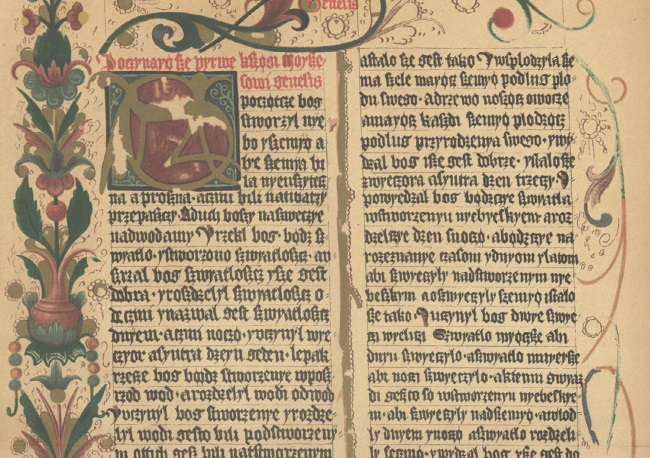 Genesis
Poczynayø sze pyrwe kszøgi moyże-
szowi genesis
Poczøtce bog
stworzyl nye-
bo y szemyø a
bye szemya bi-
la nyeuszytecz
na a prozna · a czmi bili na twarzy
przepasczy · A duch boszy na swyeczye
nad wodamy Y rzekl bog · bødz sz-
wyatlo · y stworzono szwyatloscz · a w-
szrzal bog szwyatloscz ysze gest
dobra · y rozdzelyl szwyatloscz o-
de czmi y nazwal gest szwyatloscz
dnyem · a czmi noczø · y uczynyl wye-
czor a s yutra dzen geden · lepak
rzecze bog bødz stworzenye w posz
rzod wod · a rozdzelyl wodi od wod
y uczynyl bog stworzenye y rozdze
lyl wodi gesto bili pod stworzenym
ottich gesz bili nad stworzenym
a stalo sze gest tako Y wsplodzyla sze
ma szele mayøcz szemyø podlug plo-
du swego · a drzewo noszøcz owocze
a mayøcz kaszdi szemyø plodzøcz
podlug przyrodzenya swego · y wy-
dzal bog isze gest dobrze · y stalo sze
z wyeczora a s yutra dzen trzeczy · I
powyedzal bog bødzcye szwyatla
w stworzenyu nyebyeskyem a roz
dzelcye dzen s noczø · a bødzcye na
rozeznanye czasom y dnyom y latom
abi szwyeczyly nad stworzenym nye
byeskym a oszwyeczyly szemyø y stalo
sze tako I uczynyl bog dwye szwye
czy wyelicy Szwyatlo wyøczsze abi
dnyu szwyeczylo · a szwyatlo mnyeysze
abi nocy szwyeczylo · a k temu gwyaz
di gesto so w stworzenyu nyebyeskye
m · abi szwyeczyly nad szemyø · a wlod
ly dnyem y noczø a szwyatlo rozdzeli
ly se czmø · y wydzal bog ysze gest do